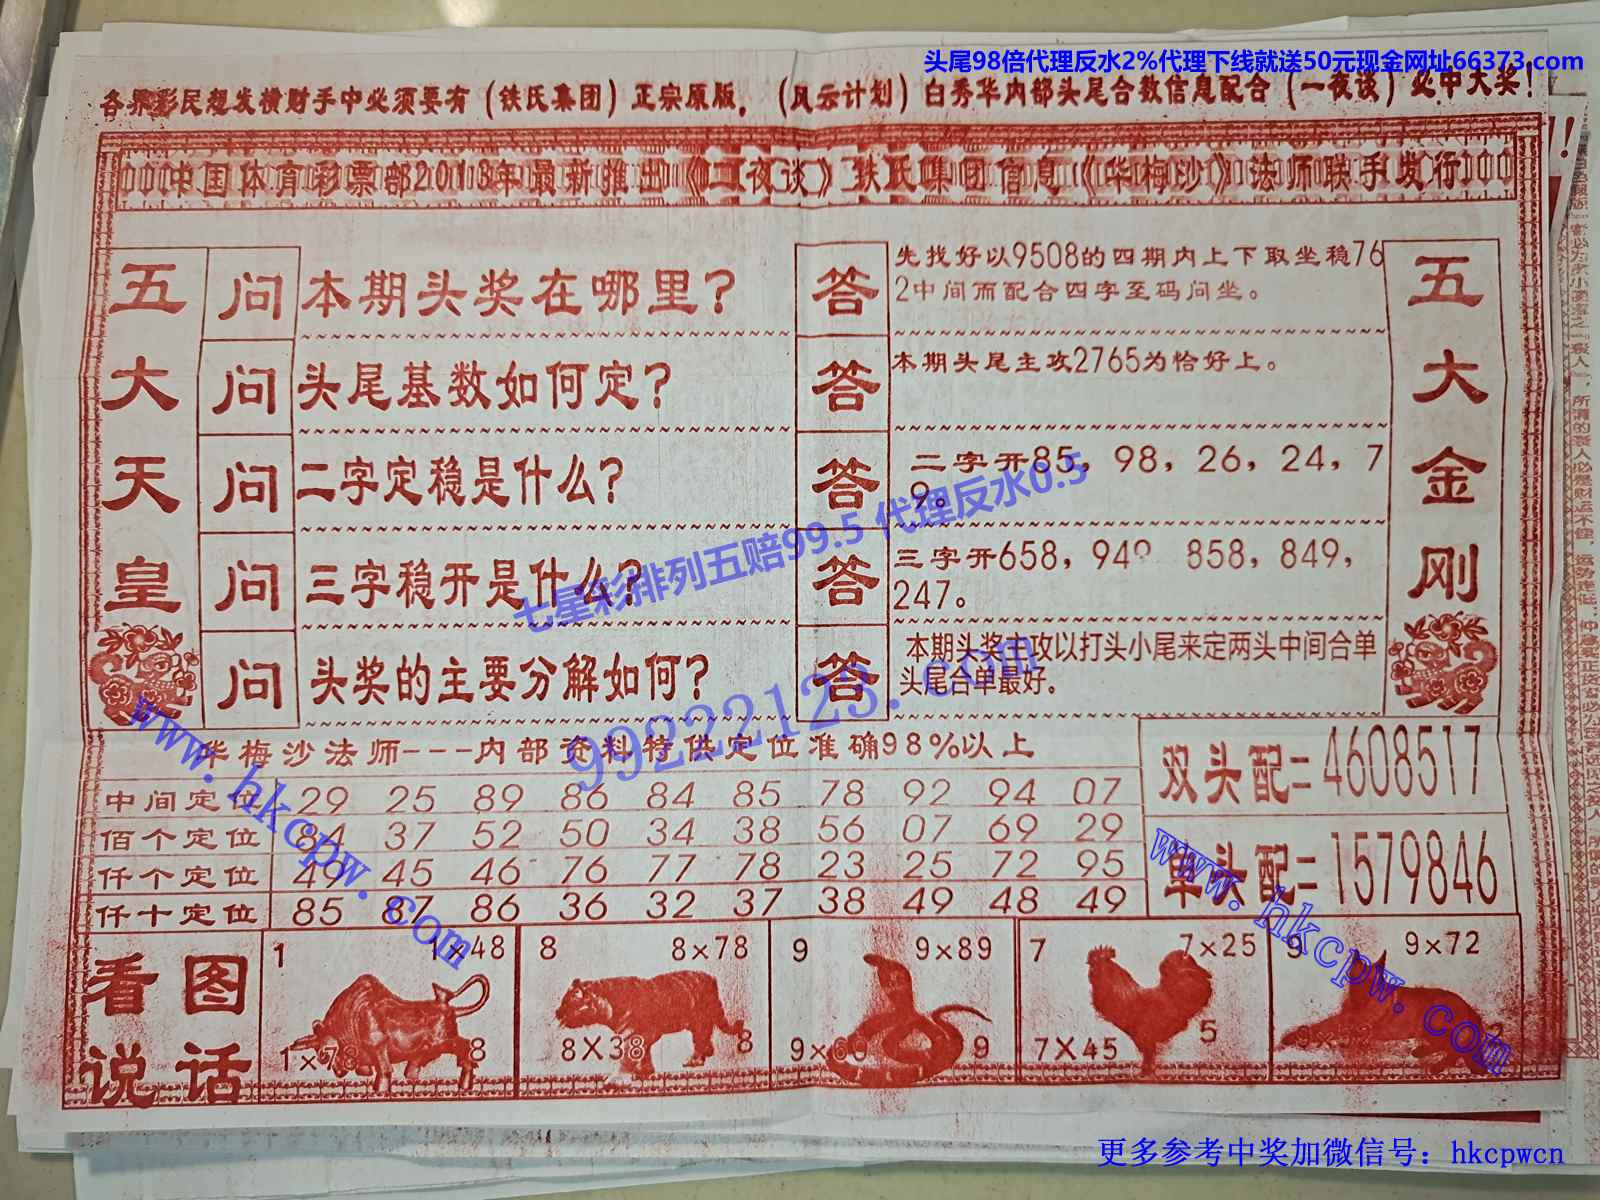 头尾98倍代理反水2%代理下线就送50元现金网址66373.com
各界彩民想发横财手中必须要有（铁氏集团）正宗原版，（风云计划）白秀华内部头尾合数信息配合（一夜谈）必中大奖！
中国体育彩票部2013年最新推出《一夜谈》铁氏集团信息《华梅沙》法师联手发行
五大天皇
问 本期头奖在哪里？
答 先找好以9508的四期内上下取坐稳76
2中间而配合四字至码问坐。
问 头尾基数如何定？
答 本期头尾主攻2765为恰好上。
问 二字定稳是什么？
答 二字开85，98，26，24，7
9。
问 三字稳开是什么？
答 三字开658，949 858，849，
247。
问 头奖的主要分解如何？
答 本期头奖主攻以打头小尾来定两头中间合单
头尾合单最好。
五大金刚
七星彩排列五赔99.5 代理反水0.5
99222123.com
华梅沙法师---内部资料特供定位准确98%以上
中间定位 29 25 89 86 84 85 78 92 94 07
佰个定位 84 37 52 50 34 38 56 07 69 29
仟个定位 49 45 46 76 77 78 23 25 72 95
仟十定位 85 87 86 36 32 37 38 49 48 49
双头配=4608517
单头配=1579846
www.hkcpw.com
www.hkcpw.com
看图
说话
1 1×48
1×78 8
8 8×78
8×38 8
9 9×89
9×60 9
7 7×25
7×45 5
9 9×72
更多参考中奖加微信号：hkcpwcn